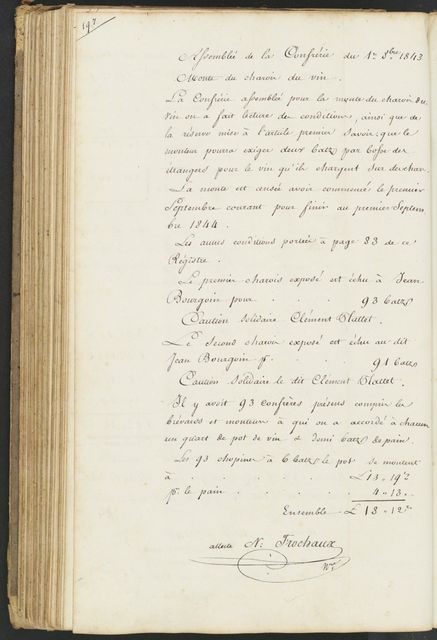 197
Assemblée de la Confrérie du 1er 7bre 1843
Monte du charoi du vin.
La Confrérie assemblée pour la monte du charoi du
vin on a fait lecture des conditions, ainsi que de
la réserve mise à l'article premier savoir que le
monteur pourra exiger deux batz par bosse des
étrangers pour le vin qu'ils chargent sur des chars.
La monte est censée avoir commencé le premier
Septembre courant pour finir au premier Septem
bre 1844.
Les autres conditions portées à page 83 de ce
Régistre.
Le premier charois exposé est échu à Jean
Bourgoin pour . . . 93 batz
Caution solidaire Clément Hattet.
Le second charoi exposé est échu au dit
Jean Bourgoin pr. . . . . 91 batz
Caution solidaire le dit Clément Hattet.
Il y avait 93 confrères présens compris les
brévards et monteur à qui on a accordé à chacun
un quart de pot de vin & demi batz de pain.
Les 93 chopines à 6 batz le pot se montent
à . . . . . . £ 13 " 19
pr. le pain . . . . . 4 " 13 "
Ensemble £ 18 " 12
atteste N. Frochaux
Nre